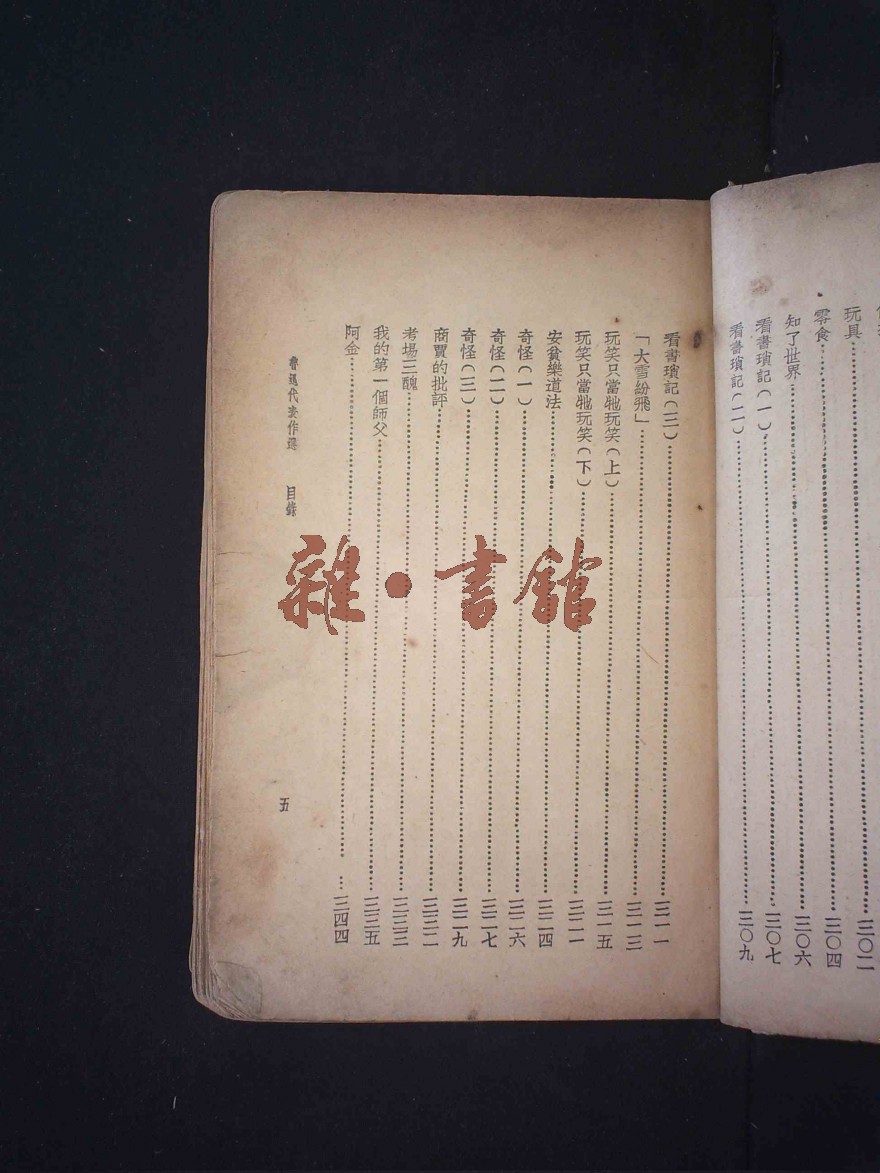 玩具……三〇二
零食……三〇四
知了世界……三〇六
看書瑣記（一）……三〇七
看書瑣記（二）……三〇九
看書瑣記（三）……三一一
「大雪紛飛」……三一三
玩笑只當牠玩笑（上）……三一五
玩笑只當牠玩笑（下）……三二一
安貧樂道法……三二四
奇怪（一）……三二六
奇怪（二）……三二七
奇怪（三）……三二九
商賈的批評……三三一
考場三醜……三三三
我的第一個師父……三三五
阿金……三四四
魯迅代表作選 目錄 五
雜·書館